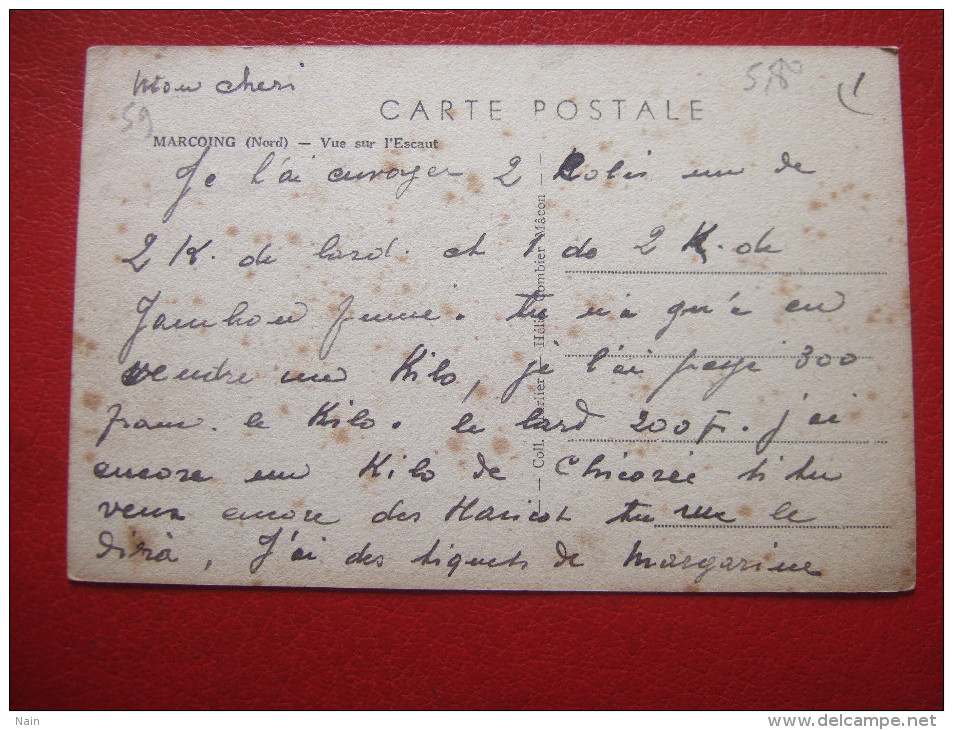 Mon cheri
5180
59
CARTE POSTALE
MARCOING (Nord) — Vue sur l'Escaut
Je l'ai envoyer 2 Kolis un de
2 K. de lard. et 1 de 2 K. de
Jambon fumé. tu n'a qu'a en
vendre un Kilo, je l'ai payé 300
franc. le Kilo. le lard 200 F. j'ai
encore un Kilo de Chicorée si tu
veux encore des Haricot tu me le
dira, J'ai des tiquets de Margarine
— Coll. — Hélio Combier Mâcon —
Nain
http://www.delcampe.net